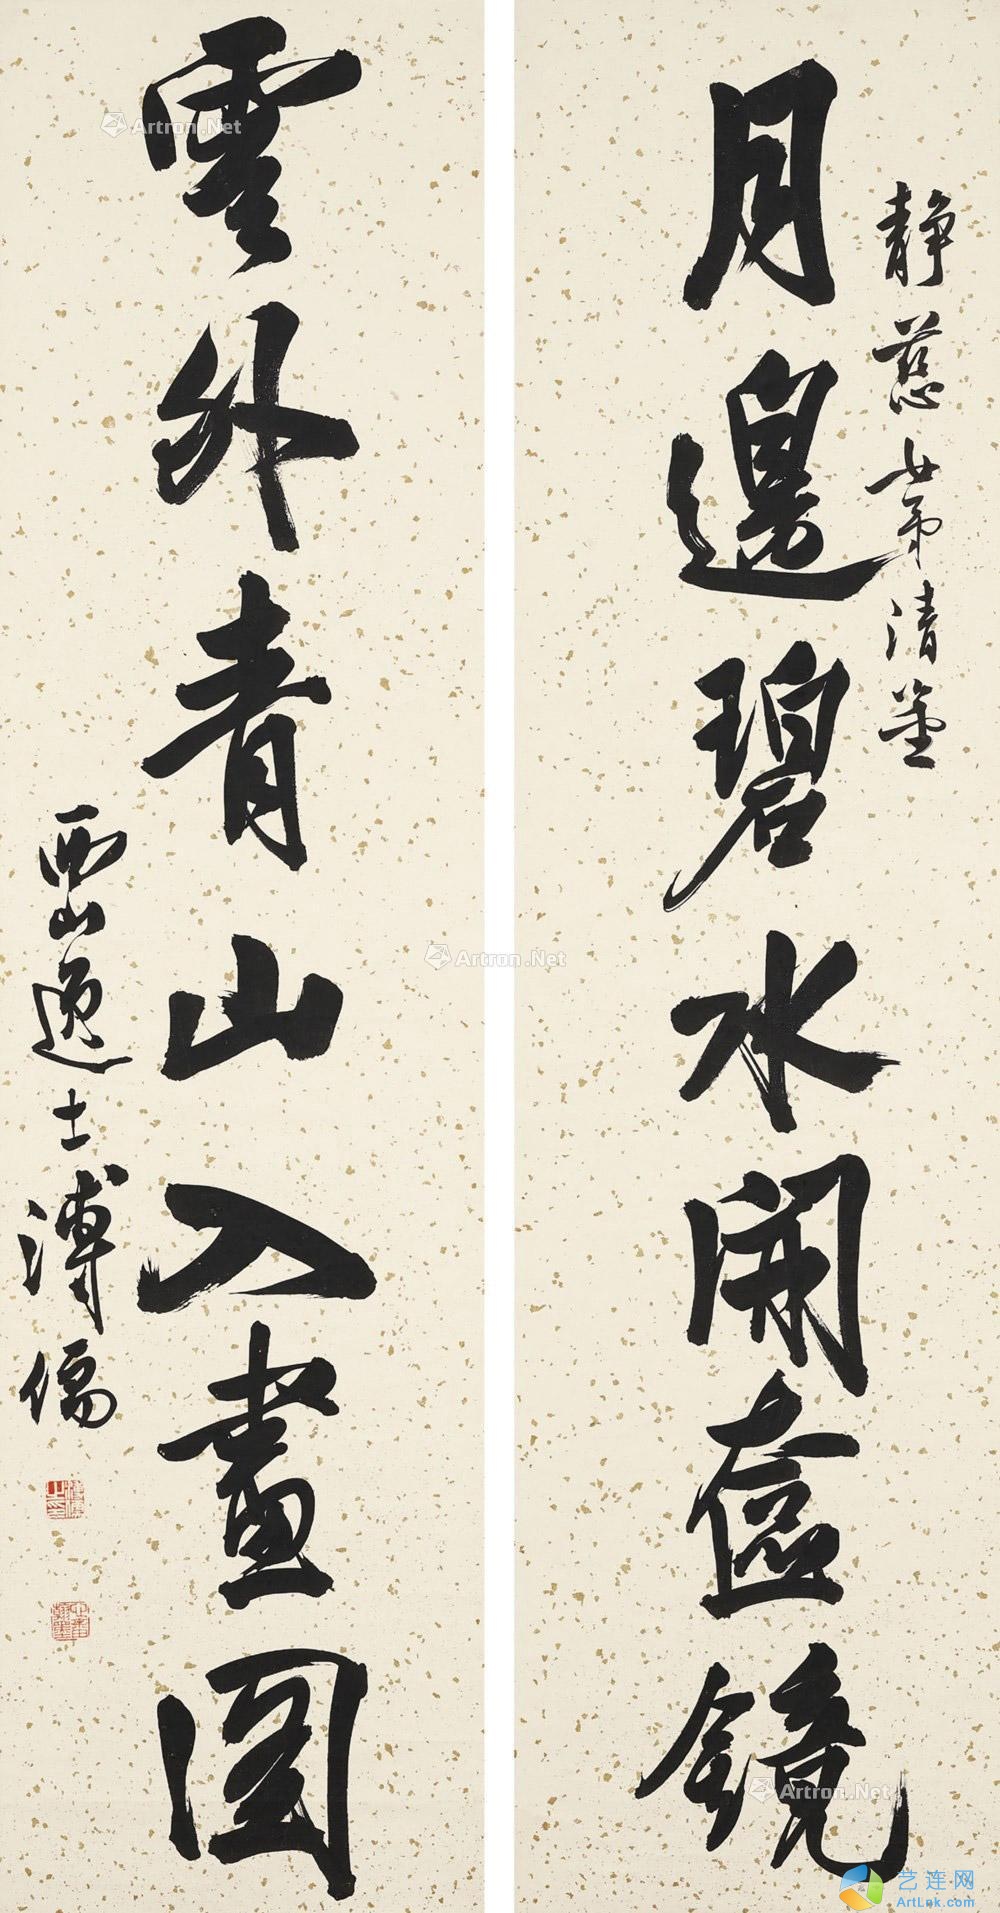 靜慈女弟清鑒
月邊碧水開奩鏡
雲外青山入畫圖
西山逸士溥儒
Artron.Net
Artron.Net
Artron.Net
艺连网
ArtLnk.com